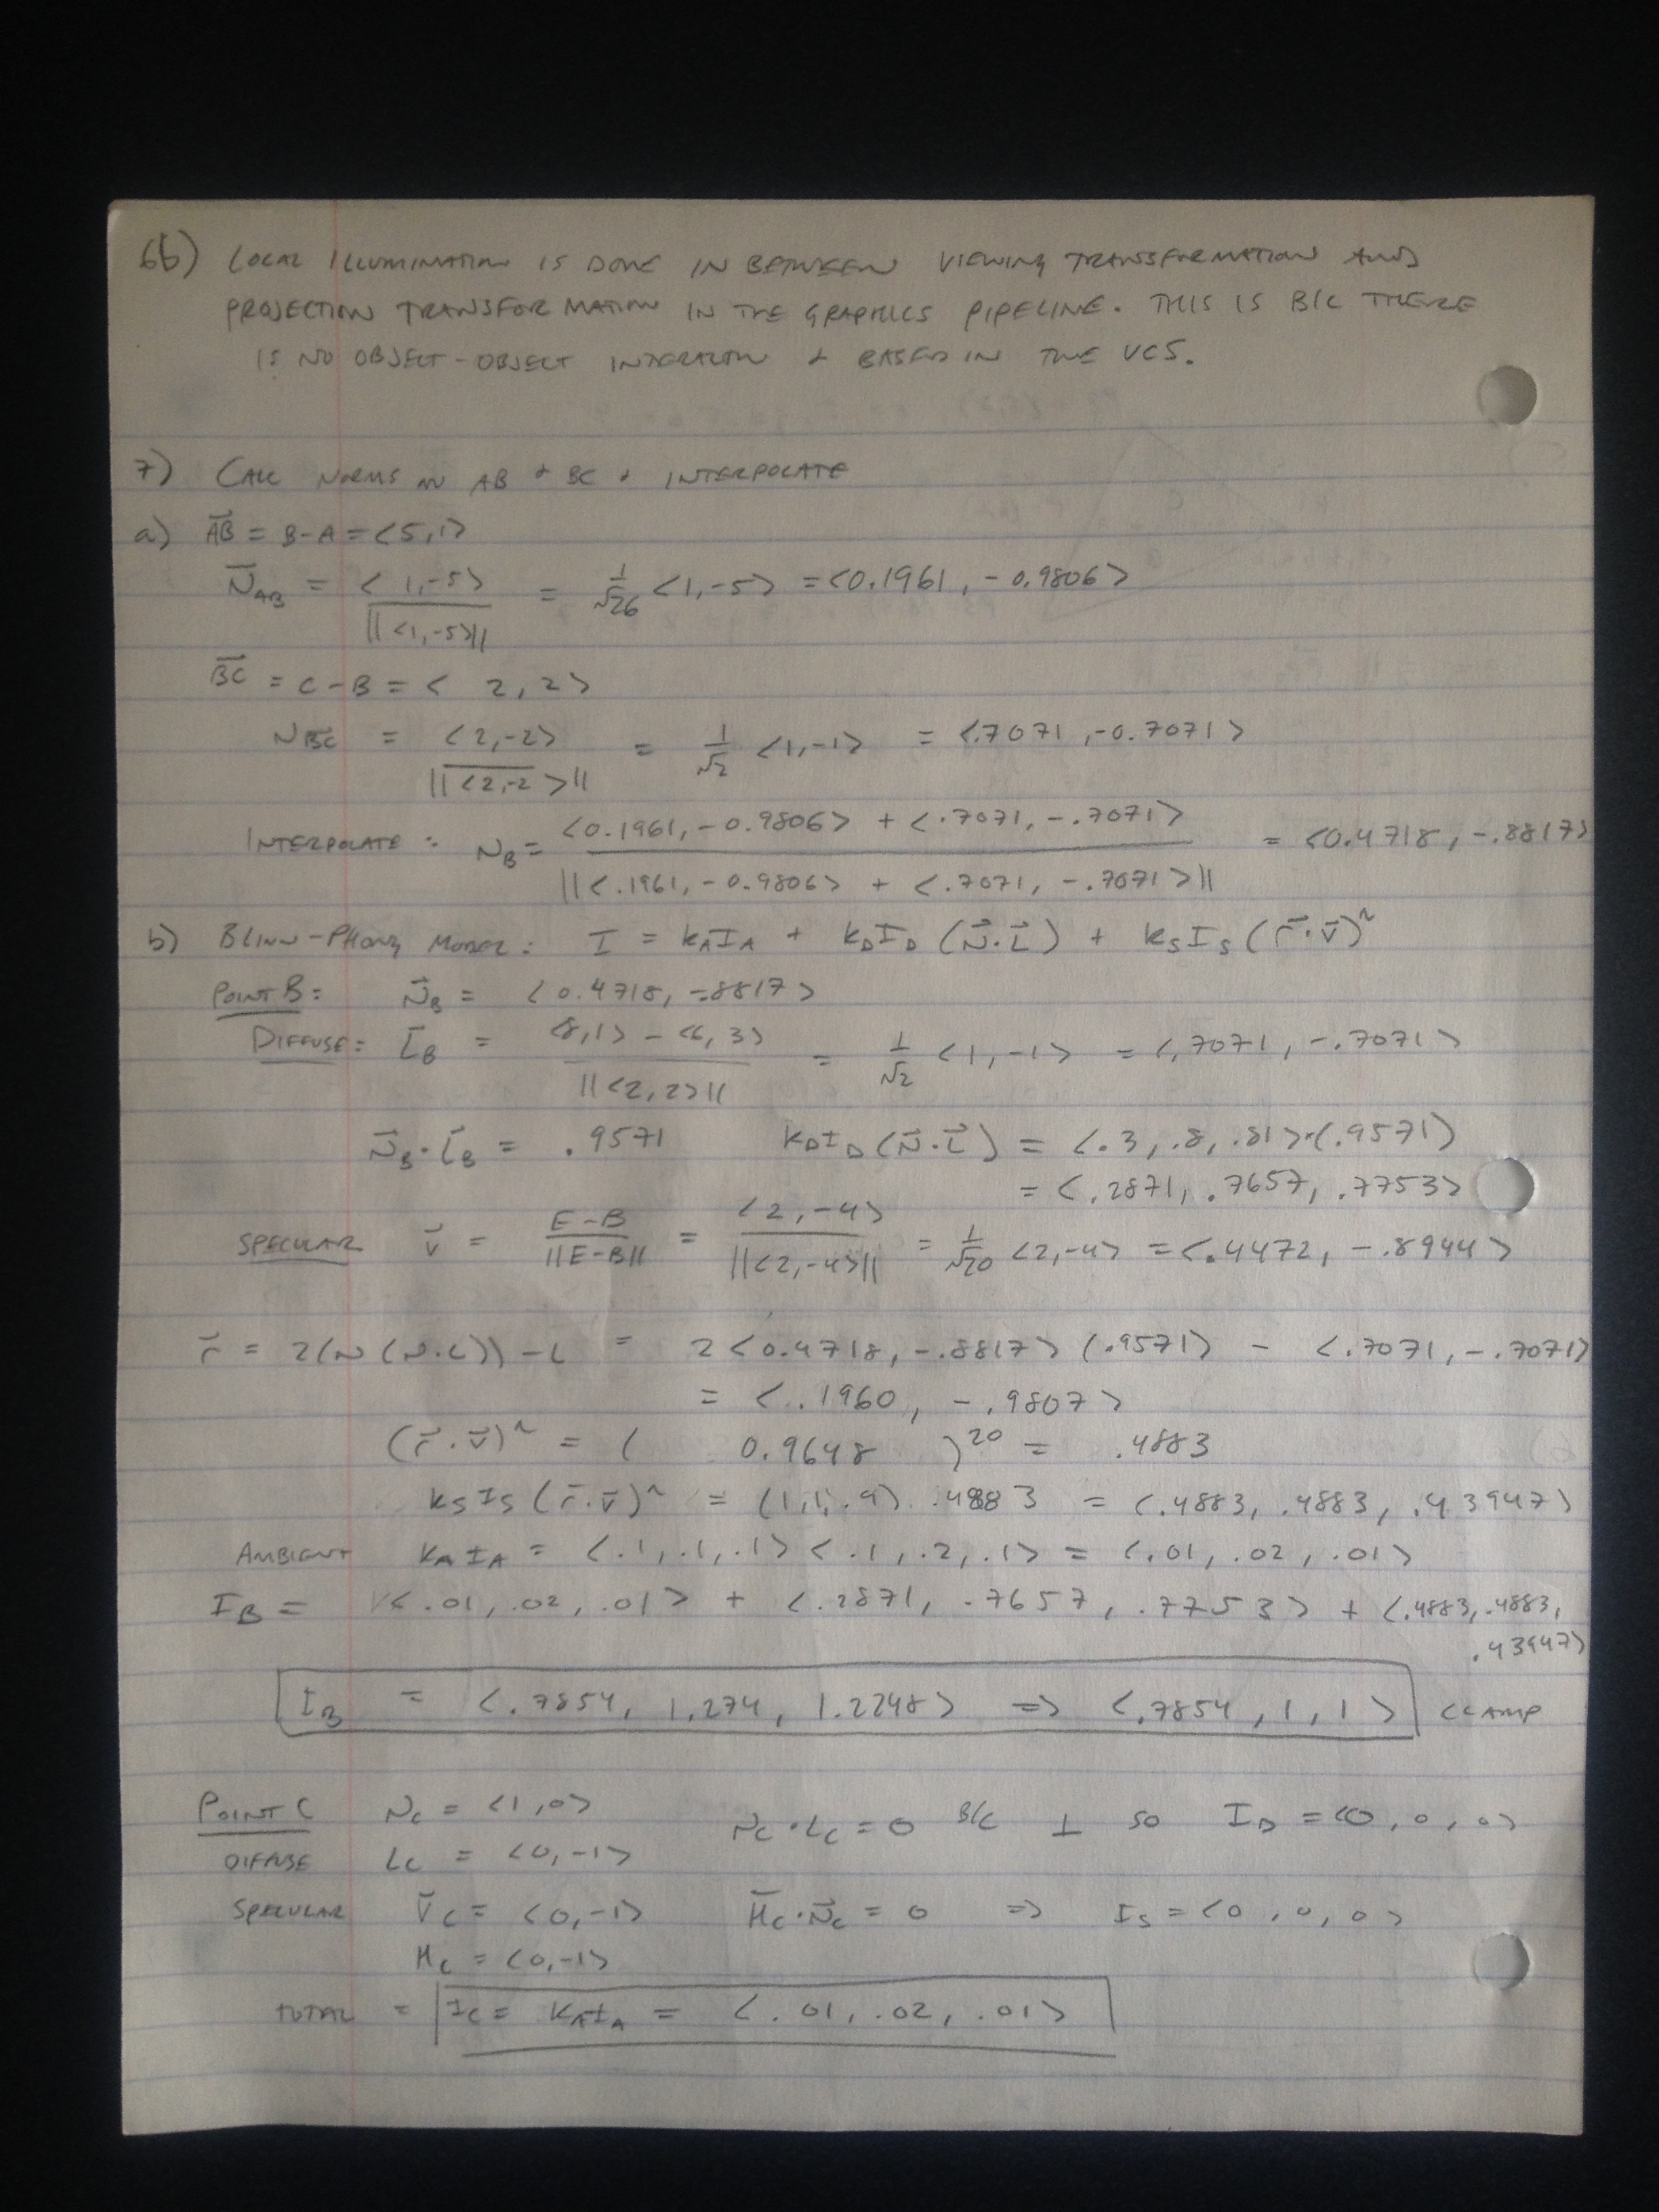 6b) LOCAL ILLUMINATION IS DONE IN BETWEEN VIEWING TRANSFORMATION AND
PROJECTION TRANSFORMATION IN THE GRAPHICS PIPELINE. THIS IS B/C THERE
IS NO OBJECT-OBJECT INTERACTION & BASED IN THE VCS.
7) CALC NORMS ON AB & BC & INTERPOLATE
a) AB = B-A = <5,1>
N_AB = <1,-5> / ||<1,-5>|| = 1/√26 <1,-5> = <0.1961, -0.9806>
BC = C-B = < 2,2>
N_BC = <2,-2> / ||<2,-2>|| = 1/√2 <1,-1> = <.7071,-0.7071>
INTERPOLATE: N_B = <0.1961,-0.9806> + <.7071,-.7071> / ||<.1961,-0.9806> + <.7071,-.7071>|| = <0.4718,-.8817>
b) BLINN-PHONG MODEL: I = k_A I_A + k_D I_D (N·L) + k_S I_S (r·v)^n
POINT B: N_B = <0.4718, -.8817>
DIFFUSE: L_B = <8,1> - <6,3> / ||<2,2>|| = 1/√2 <1,-1> = <.7071,-.7071>
N_B·L_B = .9571 k_D I_D (N·L) = <.3,.8,.81>·(.9571)
= <.2871, .7657, .7753>
SPECULAR v = E-B / ||E-B|| = <2,-4> / ||<2,-4>|| = 1/√20 <2,-4> = <.4472, -.8944>
r = 2(N(N·L))-L = 2<0.4718,-.8817>(.9571) - <.7071,-.7071>
= <.1960, -.9807>
(r·v)^n = ( 0.9648 )^20 = .4883
k_S I_S (r·v)^n = (1,1,.9) .4883 = <.4883, .4883, .43947>
AMBIENT k_A I_A = <.1,.1,.1><.1,.2,.1> = <.01,.02,.01>
I_B = <.01,.02,.01> + <.2871,.7657,.7753> + <.4883,.4883,
.43947>
I_B = <.7854, 1.274, 1.2248> => <.7854,1,1> CLAMP
POINT C N_C = <1,0> N_C·L_C = 0 B/C ⊥ SO I_D = <0,0,0>
DIFFUSE L_C = <0,-1>
SPECULAR V_C = <0,-1> H_C·N_C = 0 => I_S = <0,0,0>
H_C = <0,-1>
TOTAL = I_C = K_A I_A = <.01,.02,.01>